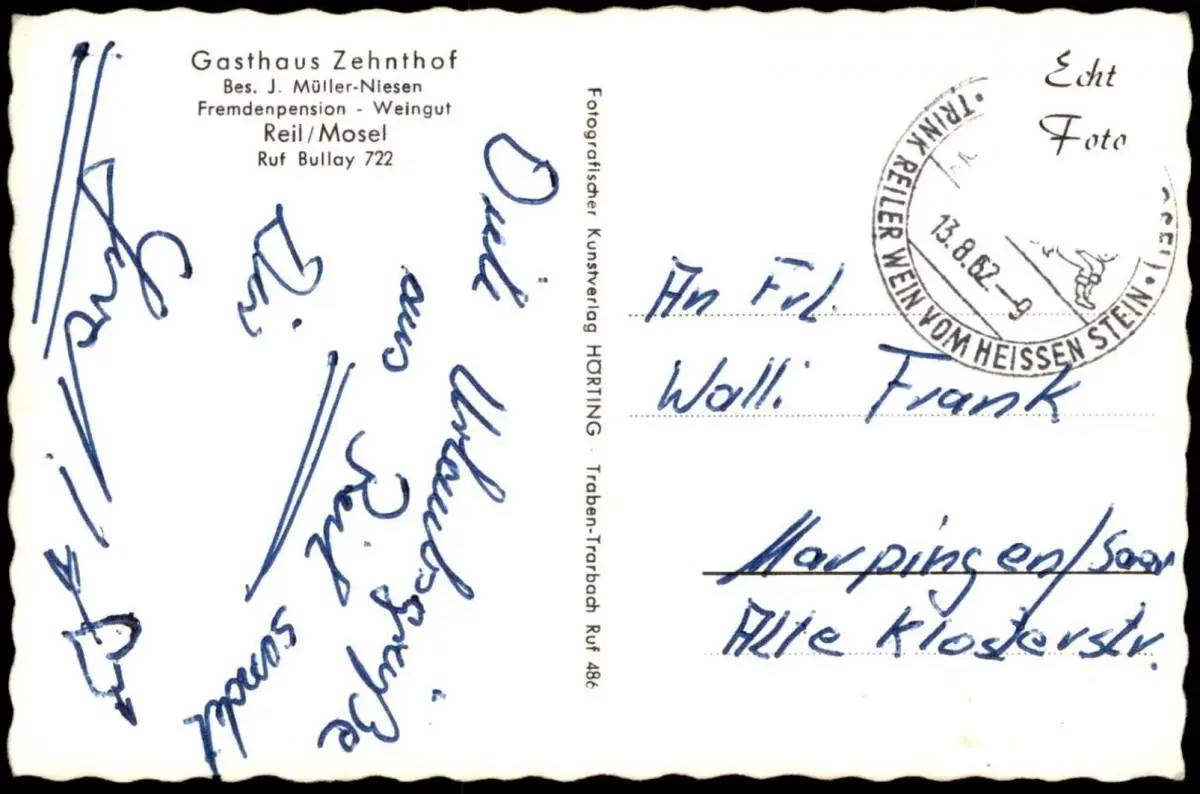 Gasthaus Zehnthof
Bes. J. Müller-Niesen
Fremdenpension - Weingut
Reil/Mosel
Ruf Bullay 722
Urlaubsgrüße
aus Reil
sendet
Dir
Fotografischer Kunstverlag HÖRTING · Traben-Trarbach Ruf 486
Echt
Foto
· TRINK REILER WEIN VOM HEISSEN STEIN ·
13.8.62-9
An Frl.
Walli Frank
Marpingen/Saar
Alte Klosterstr.